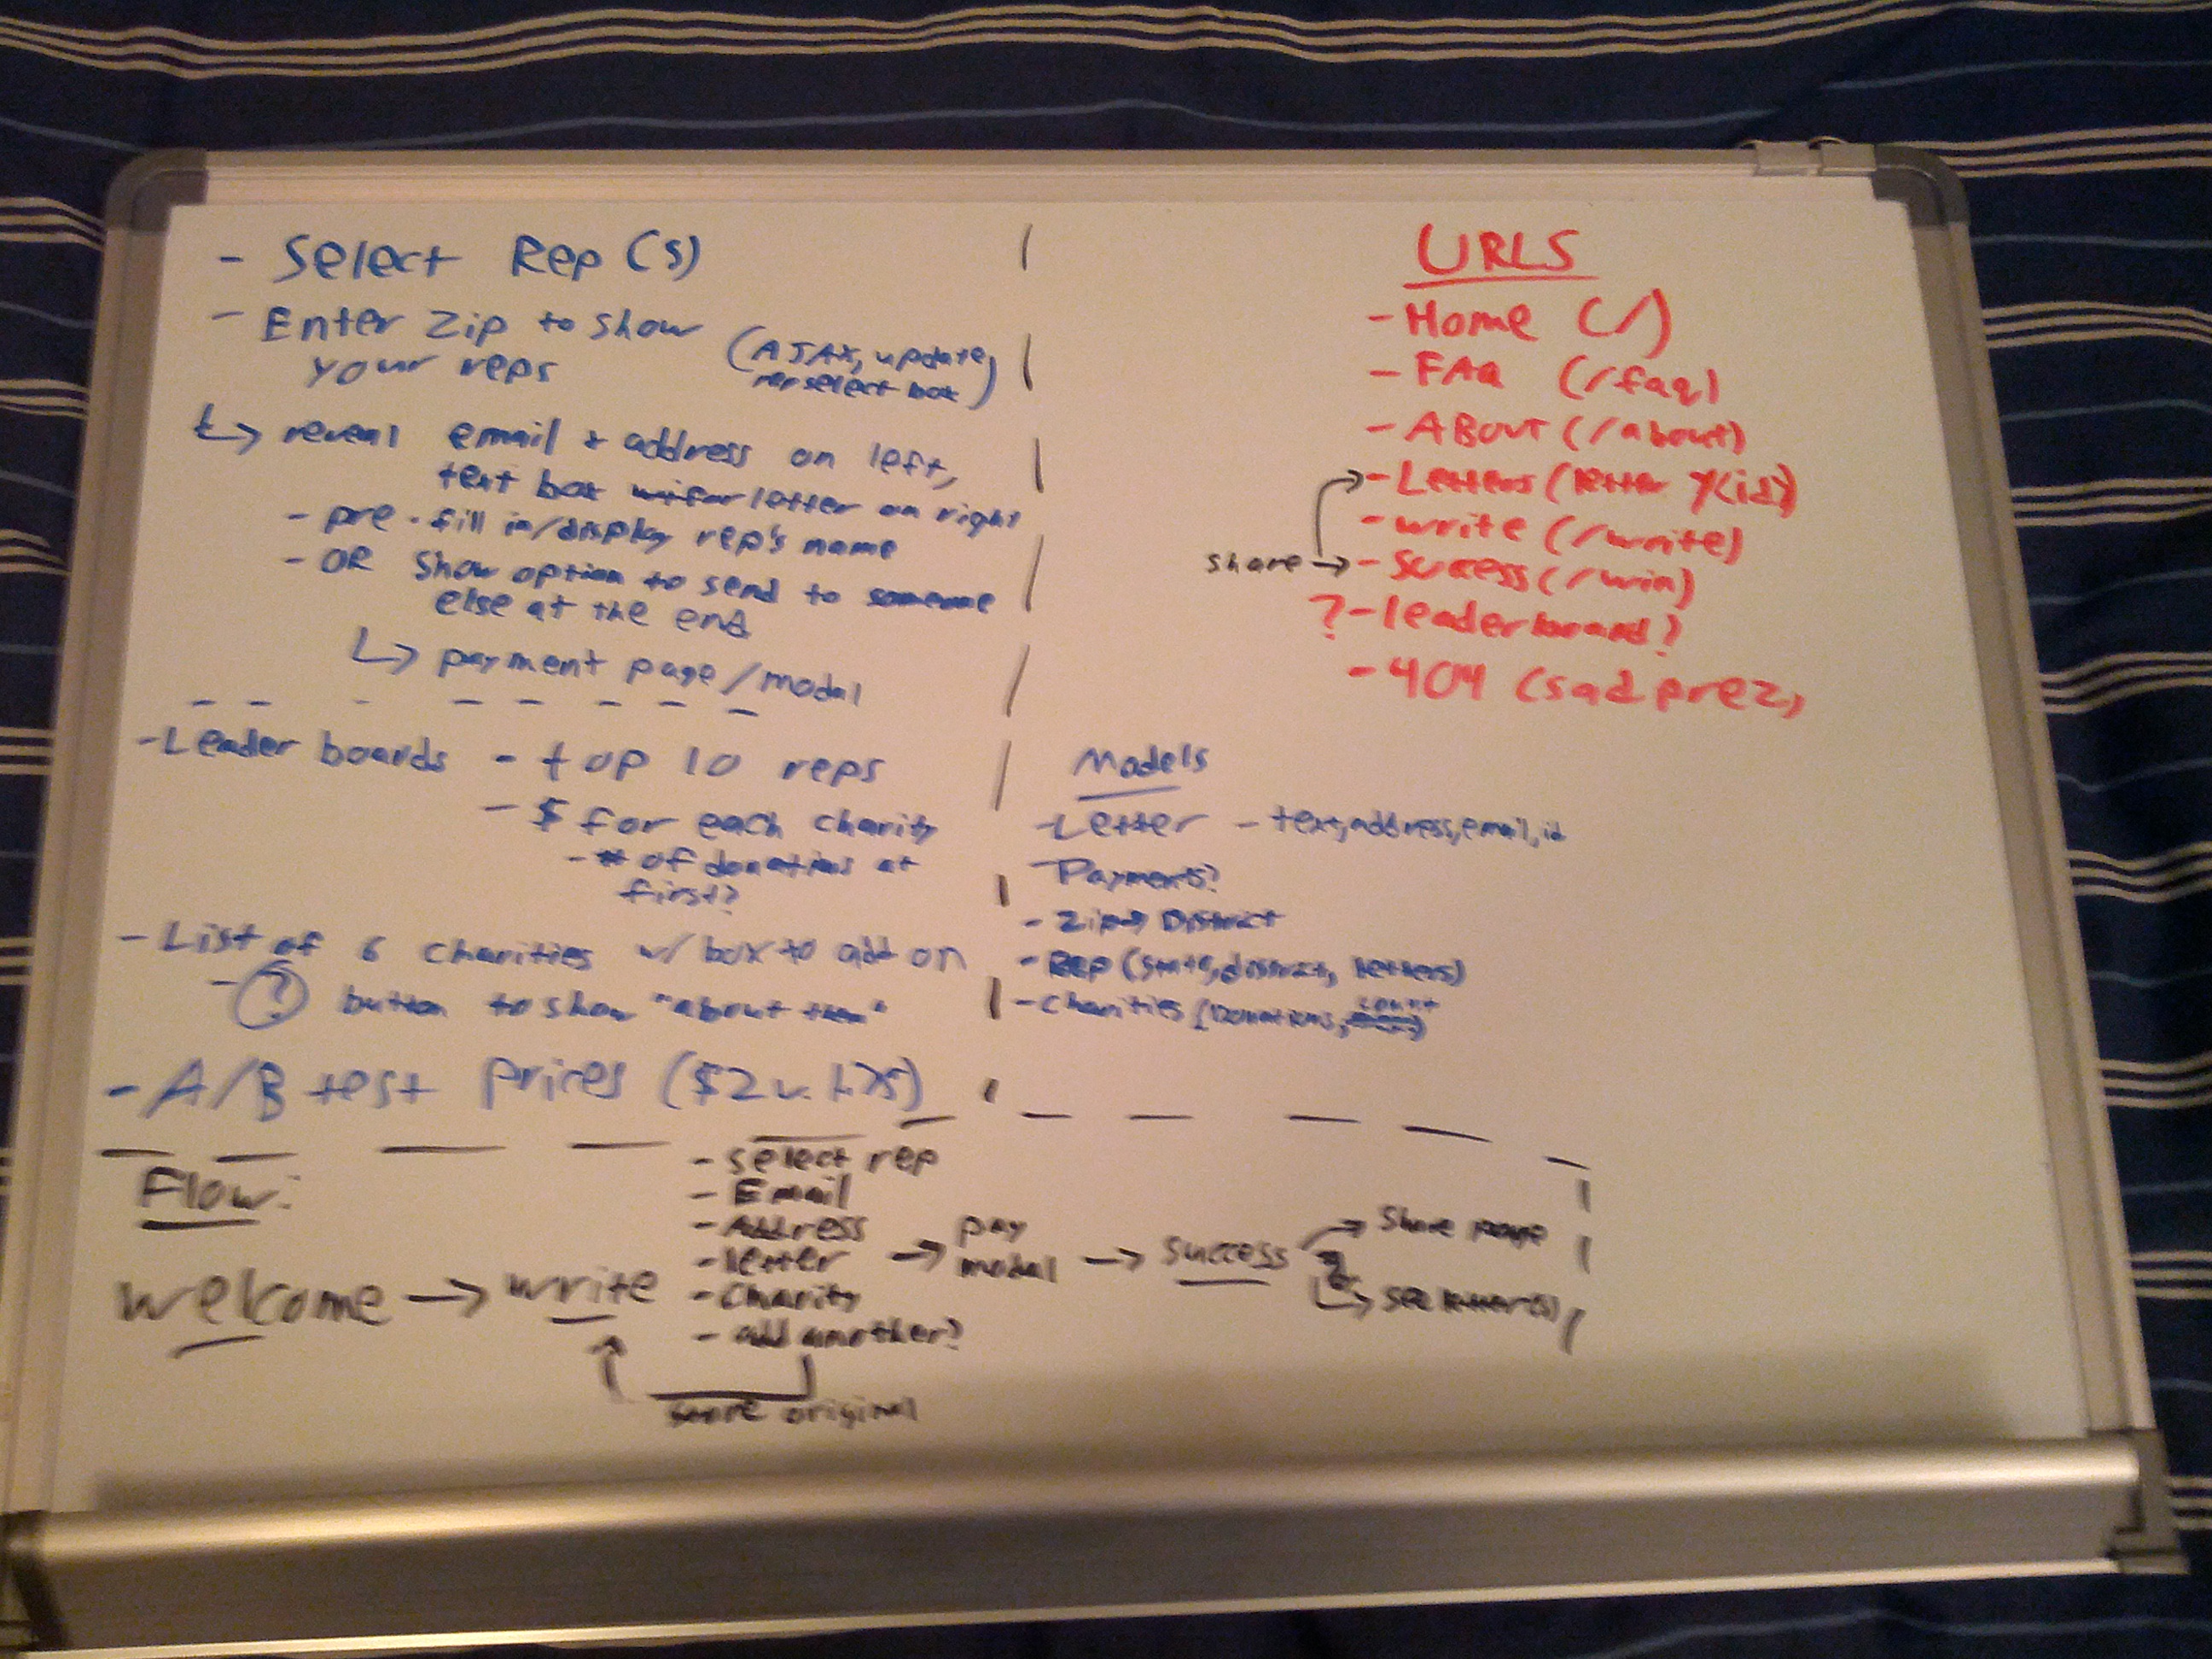 - Select Rep (s)
- Enter Zip to show
your reps
(AJAX, update
rep select box)
reveal email + address on left,
text box for letter on right
- pre-fill in/display rep's name
- OR show option to send to someone
else at the end
payment page/modal
- Leader boards - top 10 reps
- $ for each charity
- # of donations at
first?
- List of 6 charities w/ box to add on
- ? button to show "about them"
- A/B test prices ($2 v.
URLS
- Home (/)
- FAQ (/faq)
- ABOUT (/about)
- Letters (letter
- write (/write)
share → - Success (/win)
? - leaderboard?
- 404 (sad prez)
Models
- Letter - text, address, email, id
Payments?
- Zip → District
- Rep (state, district, letters)
- Charities (Donations, count)
Flow:
welcome → write
- select rep
- Email
- Address
- letter
- Charity
- add another?
→ pay
modal
→ success
share page
see letter(s)
original